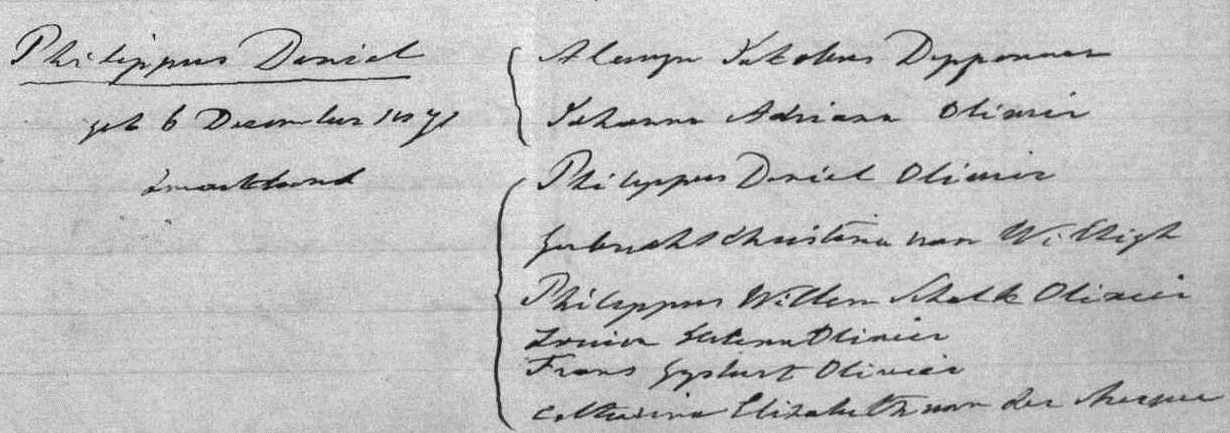 Philippus Daniel
geb 6 December 1871
Zwartland
Alewyn Jakobus Dipponaar
Johanna Adriana Olivier
Philippus Daniel Olivier
Gerbrecht Christina van Willigh
Philippus Willem Schalk Olivier
Louisa Helena Olivier
Frans Gysbert Olivier
Catharina Elizabeth van der Merwe